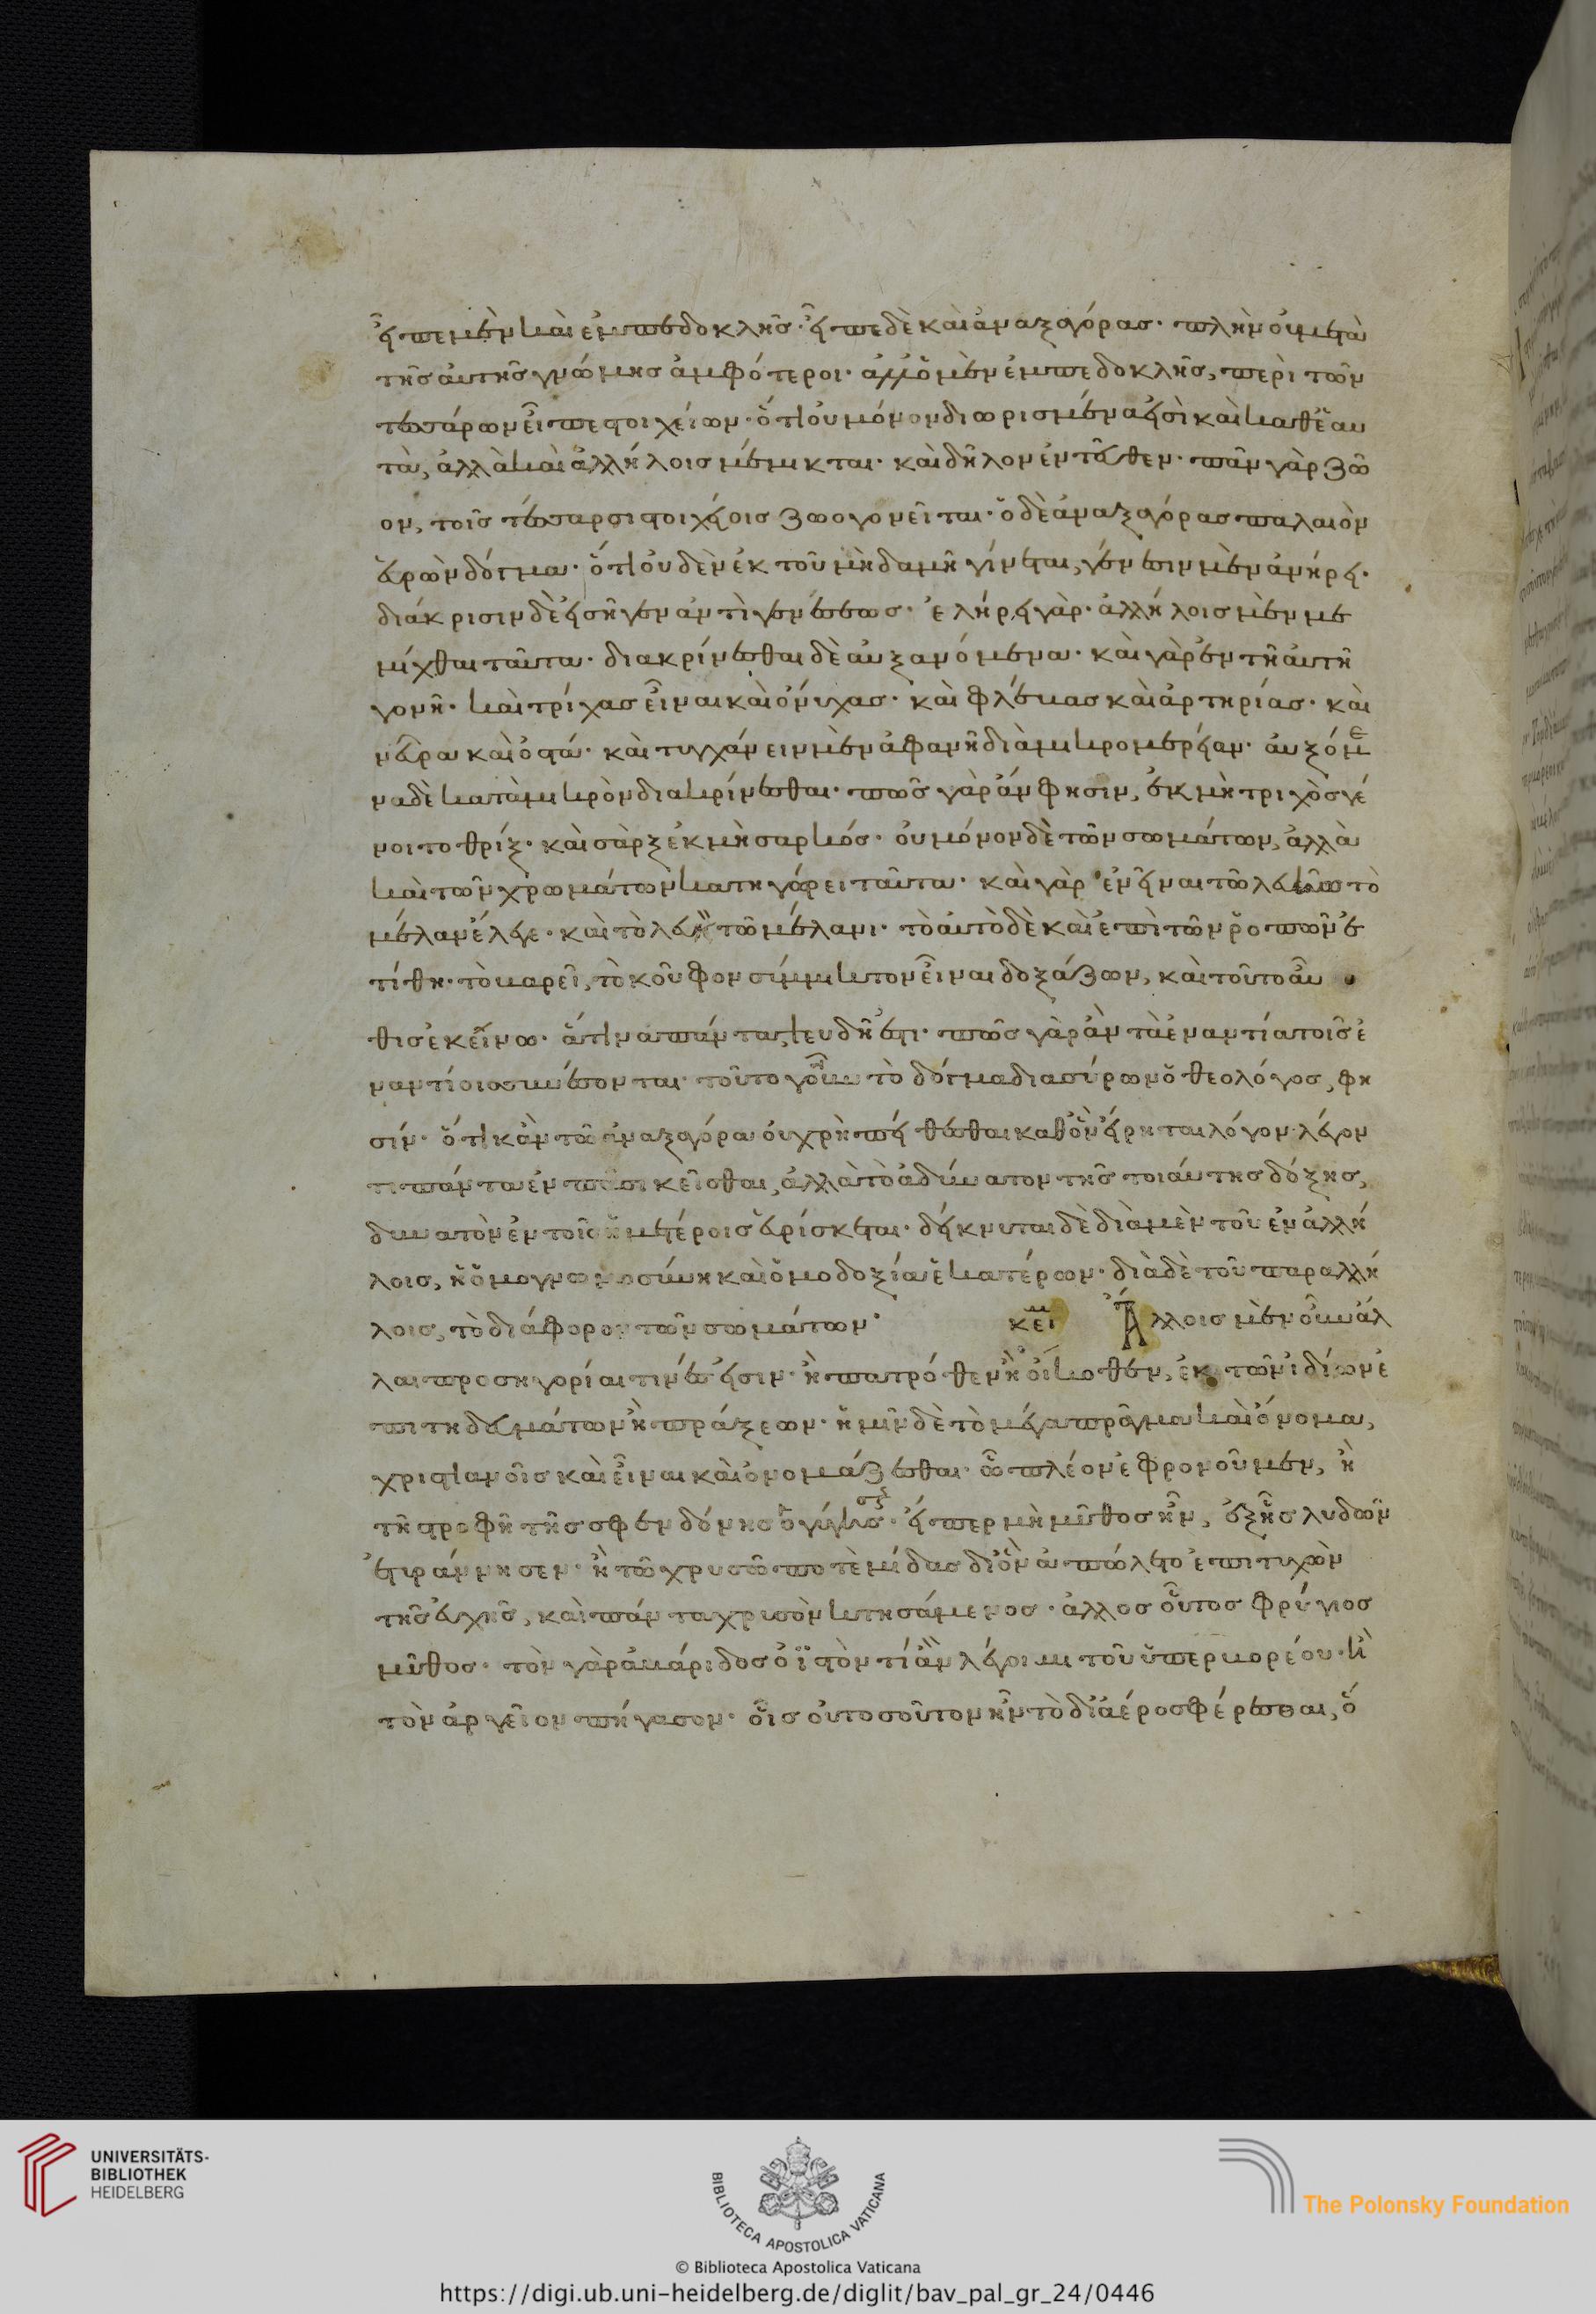 εἶπε μὲν καὶ ἐμπεδοκλῆς· εἶπε δὲ καὶ ἀναξαγόρας· πλὴν οὐ μετὰ
τῆς αὐτῆς γνώμης ἀμφότεροι· ἀλλ' ὁ μὲν ἐμπεδοκλῆς, περὶ τῶν
τεσσάρων εἶπε στοιχείων· ὅτι οὐ μόνον διωρισμένα εἰσὶ καὶ καθ' ἑαυ
τὰ, ἀλλὰ καὶ ἀλλήλοις μέμικται· καὶ δῆλον ἐντεῦθεν· πᾶν γὰρ ζῶ
ον, τοῖς τέσσαρσι στοιχείοις ζωογονεῖται· ὁ δὲ ἀναξαγόρας παλαιὸν
εὑρὼν δόγμα· ὅτι οὐδὲν ἐκ τοῦ μηδαμῆ γίνεται, γένεσιν μὲν ἀνήρει·
διάκρισιν δὲ εἰσῆγεν ἀντὶ γενέσεως· ἐλήρει γὰρ· ἀλλήλοις μὲν με
μίχθαι ταῦτα· διακρίνεσθαι δὲ αὐξανόμενα· καὶ γὰρ ἐν τῆ αὐτῆ
γονῆ· καὶ τρίχας εἶναι καὶ ὄνυχας· καὶ φλέβας καὶ ἀρτηρίας· καὶ
νεῦρα καὶ ὀστά· καὶ τυγχάνειν μὲν ἀφανῆ διὰ μικρομερείαν· αὐξόμε
να δὲ κατὰ μικρὸν διακρίνεσθαι· πῶς γὰρ ἄν φησιν, ἐκ μὴ τριχὸς γέ
νοιτο θρίξ· καὶ σὰρξ ἐκ μὴ σαρκός· οὐ μόνον δὲ τῶν σωμάτων, ἀλλὰ
καὶ τῶν χρωμάτων κατηγόρει ταῦτα· καὶ γὰρ ἐνεῖναι τῶ λευκῶ τὸ
μέλαν ἔλεγε· καὶ τὸ λευκὸν τῶ μέλανι· τὸ αὐτὸ δὲ καὶ ἐπὶ τῶν ῥοπῶν ἐ
τίθη· τὸ βαρεῖ, τὸ κοῦφον σύμμικτον εἶναι δοξάζων, καὶ τοῦτο αὖ
θις ἐκείνω· ἅτινα πάντα ψευδῆ ἐστι· πῶς γὰρ ἂν τὰ ἐναντία τοῖς ἐ
ναντίοις συνέσονται· τοῦτο γοῦν τὸ δόγμα διασύρων ὁ θεολόγος, φη
σίν· ὅτι κἂν τῶ ἀναξαγόρα οὐ χρὴ πείθεσθαι καθ' ὃν εἴρηται λόγον λέγον
τι πάντα ἐν πᾶσι κεῖσθαι, ἀλλὰ τὸ ἀδύνατον τῆς τοιαύτης δόξης,
δυνατὸν ἐν τοῖς ἡμετέροις εὑρίσκεται· δείκνυται δὲ διὰ μὲν τοῦ ἐν ἀλλή
λοις, ἡ ὁμογνωμοσύνη καὶ ὁμοδοξία ἑκατέρων· διὰ δὲ τοῦ παραλλή
λοις, τὸ διάφορον τῶν σωμάτων· κεί Ἄλλοις μὲν οὖν ἄλ
λαι προσηγορίαι τινές εἰσιν· ἢ πατρόθεν ἢ οἴκοθεν, ἐκ τῶν ἰδίων ἐ
πιτηδευμάτων ἢ πράξεων· ἡμῖν δὲ τὸ μέγα πρᾶγμα καὶ ὄνομα,
χριστιανοῖς καὶ εἶναι καὶ ὀνομάζεσθαι· ὧ πλέον ἐφρονοῦμεν, ἢ
τῆ στροφῆ τῆς σφενδόνης ὁ γύγης· εἴπερ μὴ μῦθος ἦν, ἐξ ἧς λυδῶν
ἐτυράννησεν· ἢ τῶ χρυσῶ ποτὲ μίδας δι' ὃν ἀπώλετο ἐπιτυχὼν
τῆς εὐχῆς, καὶ πάντα χρυσὸν κτησάμενος· ἄλλος οὗτος φρύγιος
μῦθος· τὸν γὰρ ἀβάριδος ὀϊστὸν τί ἂν λέγοιμι τοῦ ὑπερβορέου· ἢ
τὸν ἀργεῖον πήγασον· οἷς οὐ τοσοῦτον ἦν τὸ δι' ἀέρος φέρεσθαι, ὅ
UNIVERSITÄTS-
BIBLIOTHEK
HEIDELBERG
BIBLIOTECA APOSTOLICA VATICANA
The Polonsky Foundation
© Biblioteca Apostolica Vaticana
https://digi.ub.uni-heidelberg.de/diglit/bav_pal_gr_24/0446